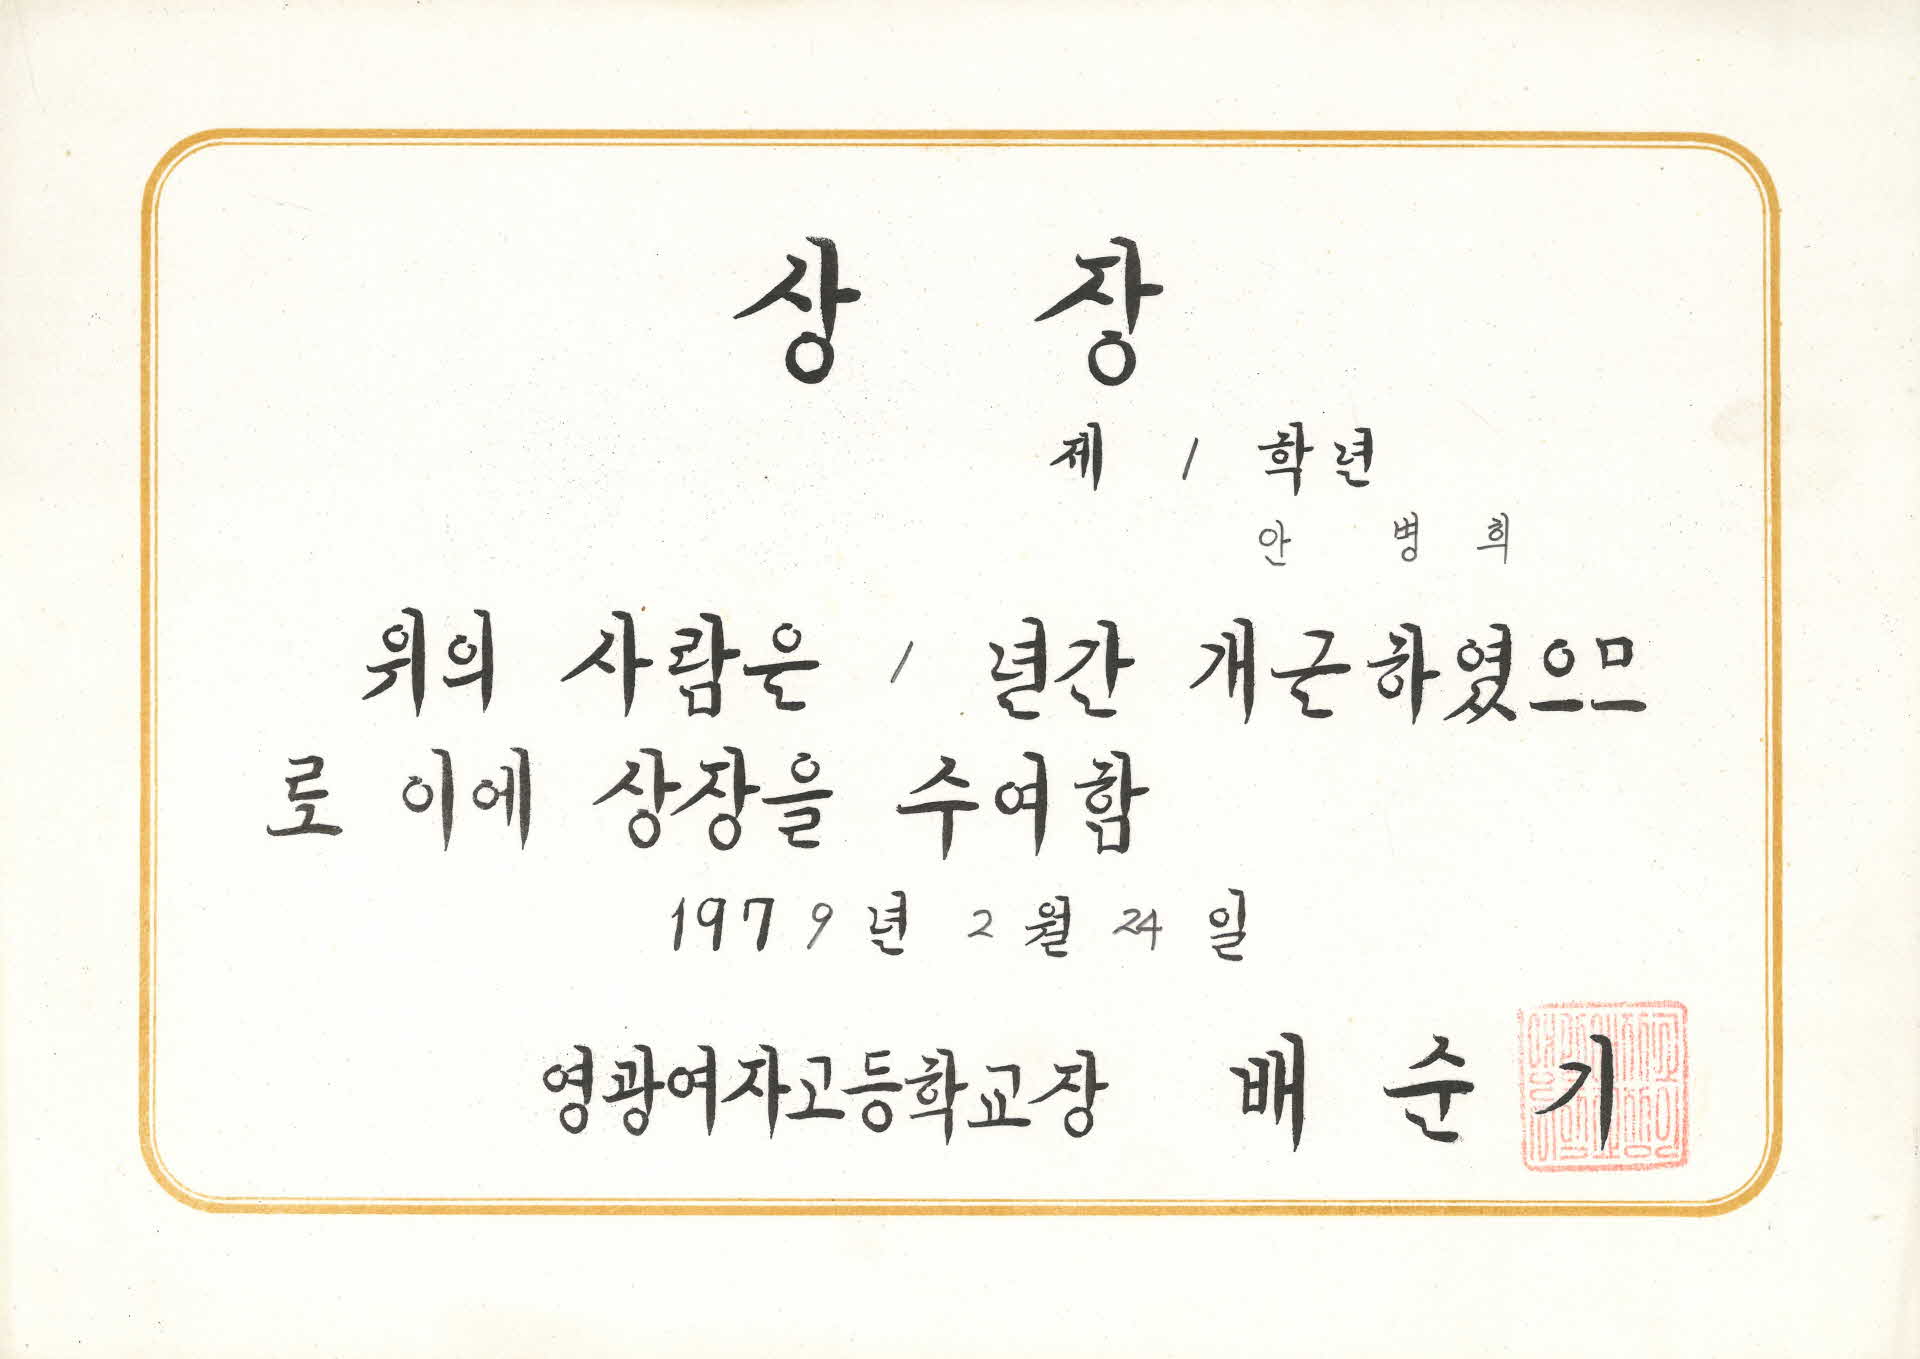 상 장
제 1 학년
안 병 희
위의 사람은 1 년간 개근하였으므
로 이에 상장을 수여함
1979년 2월 24일
영광여자고등학교장 배 순 기